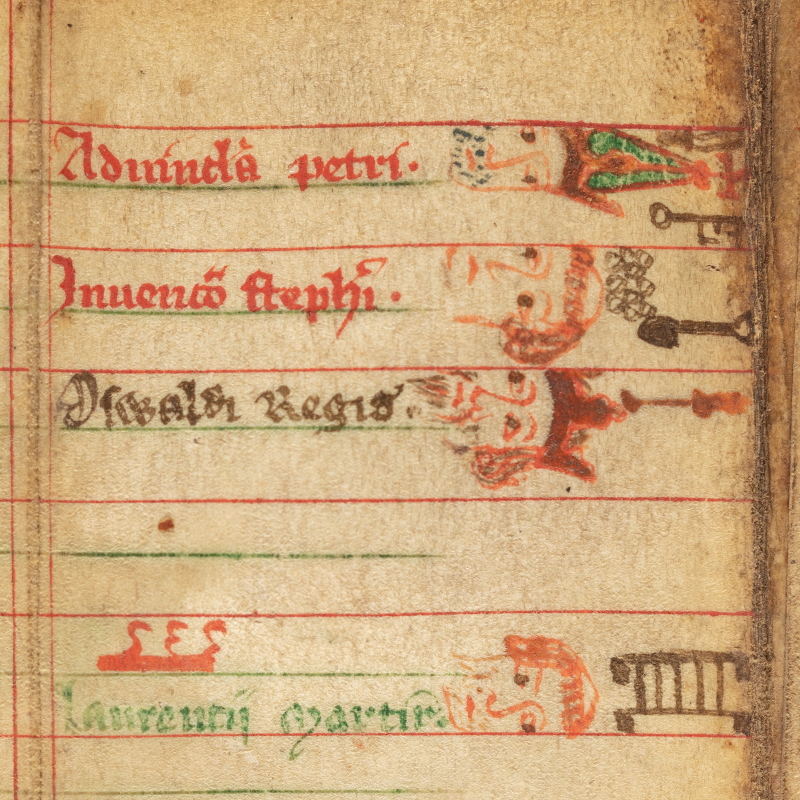 Aduincl̄a petri.
Inuencō stephī.
Oswaldi Regis.
laurencij martir̄.